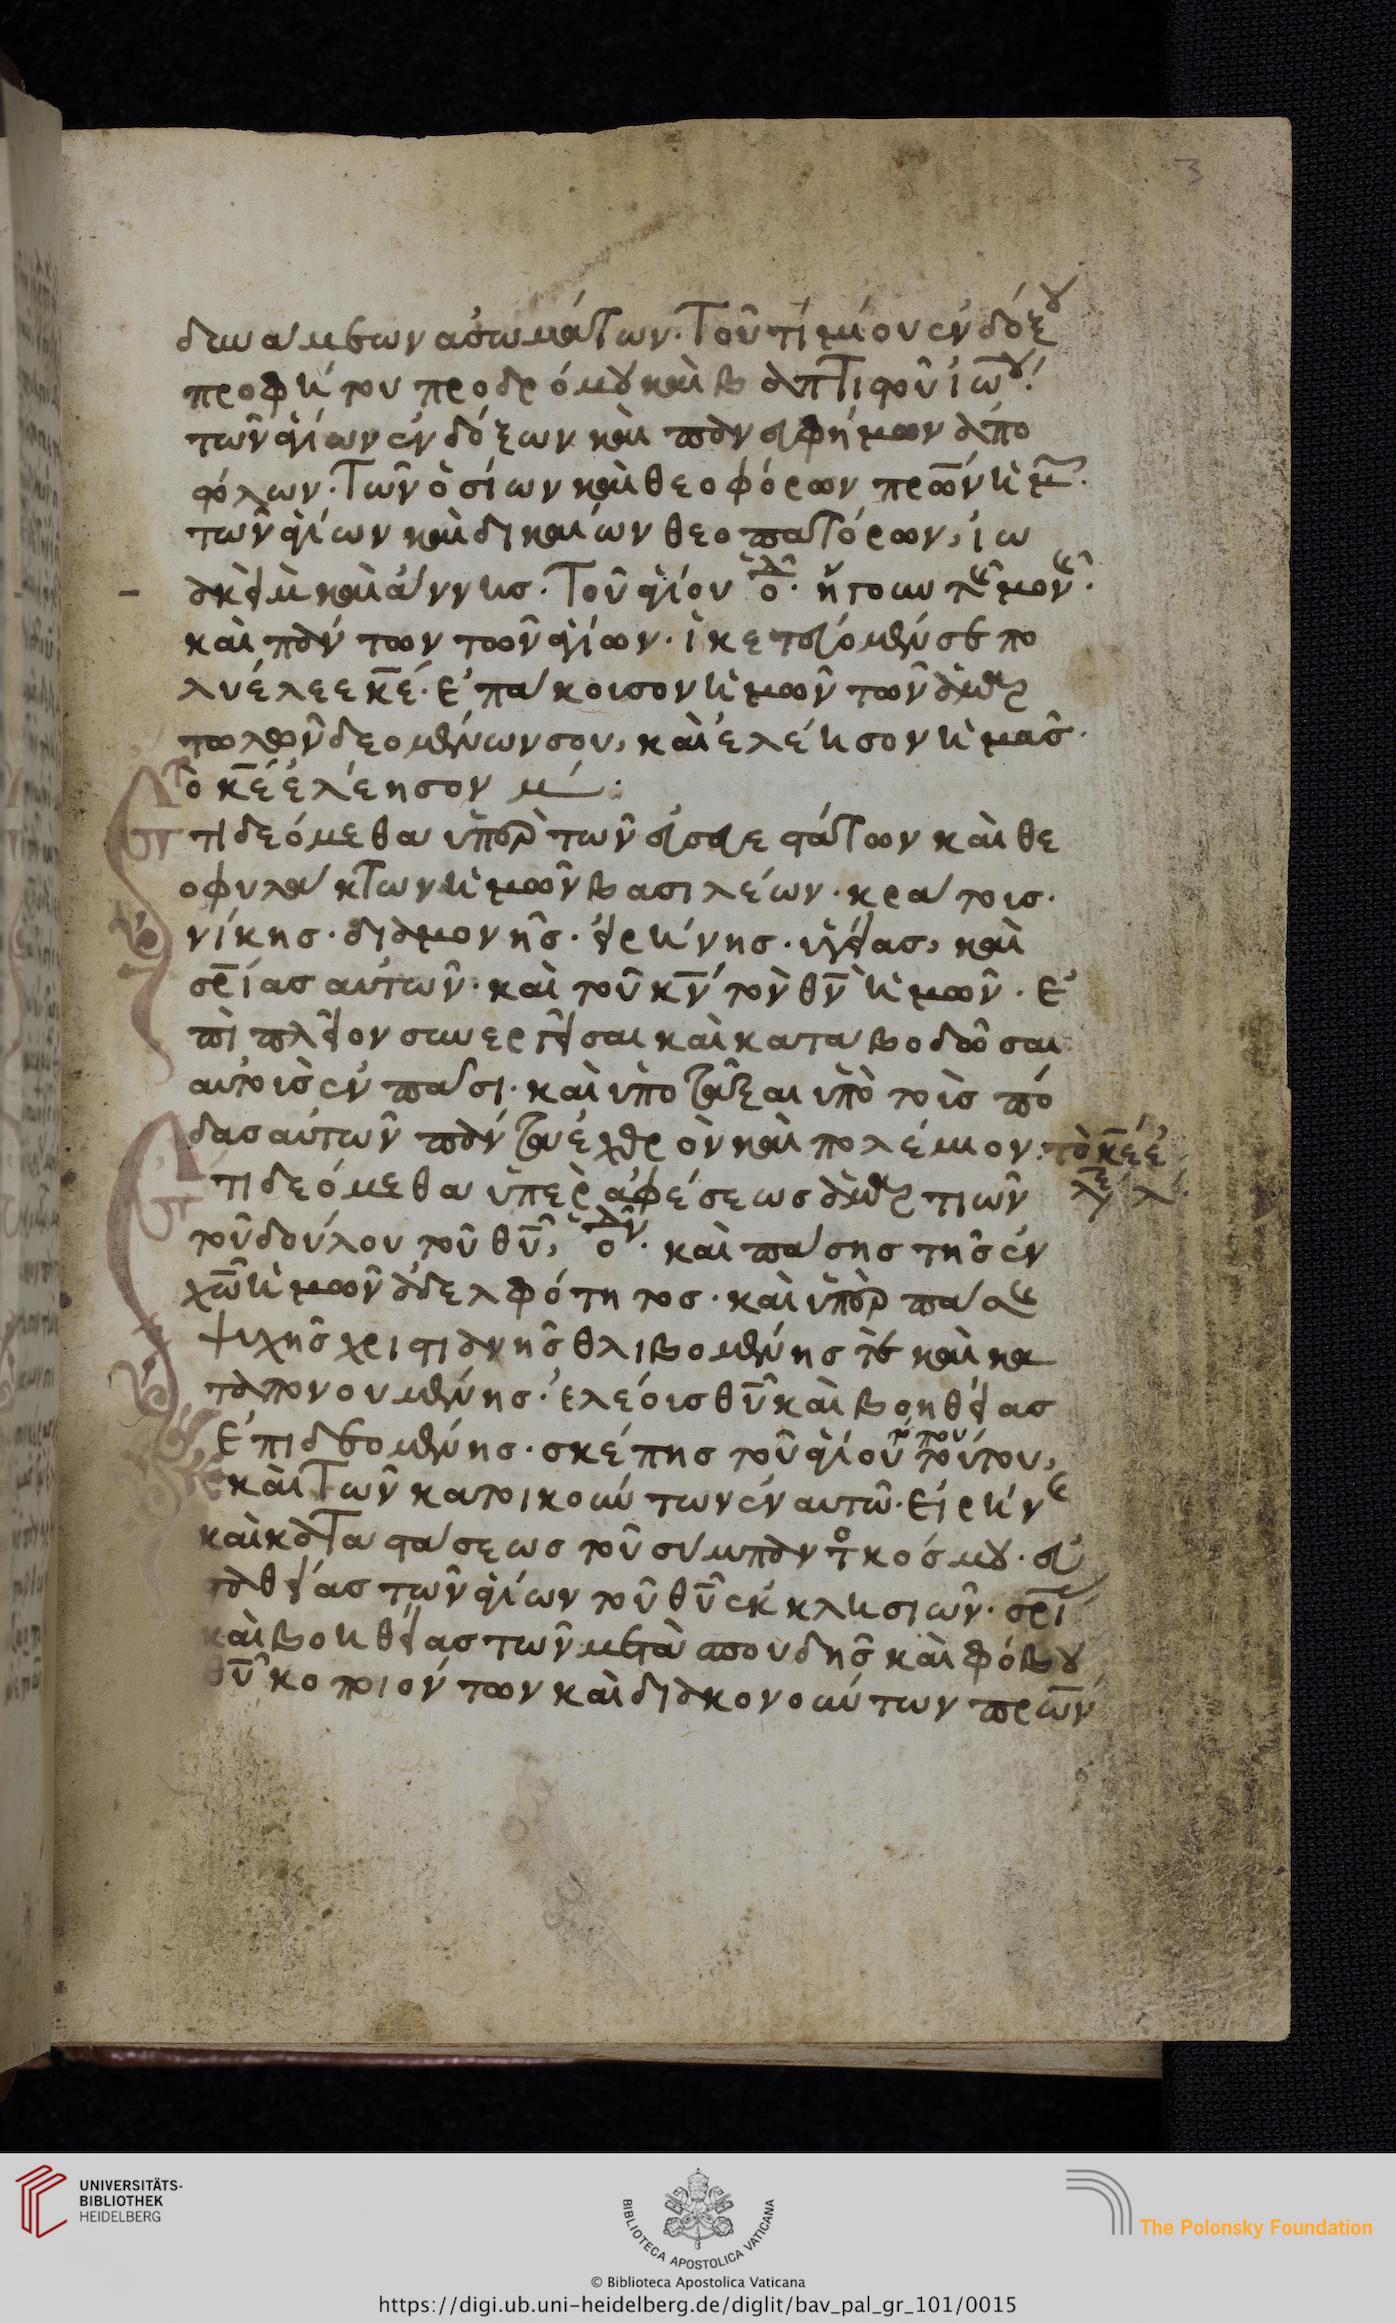 3
δυνάμεων ἀσωμάτων· Τοῦ τιμίου ἐνδόξου
προφήτου προδρόμου καὶ βαπτιστοῦ ἰω̅ου·
τῶν ἁγίων ἐνδόξων καὶ πανευφήμων ἀπο
στόλων· Τῶν ὁσίων καὶ θεοφόρων πρω̅ν ἡμ̅·
τῶν ἁγίων καὶ δικαίων θεοπατόρων, ἰω
ακεὶμ καὶ ἄννης· Τοῦ ἁγίου
καὶ πάντων τῶν ἁγίων· ἱκετεύομέν σε πο
λυέλεε κ̅ε· ἐπάκοισον ἡμῶν τῶν ἁμαρ
τωλῶν δεομένων σου, καὶ ἐλέησον ἡμᾶς·
τὸ κ̅ε ἐλέησον μ
Ἔτι δεόμεθα ὑπὲρ τῶν εὐσεβεστάτων καὶ θε
οφυλάκτων ἡμῶν βασιλέων· κράτοις·
νίκης· διαμονῆς· εἰρήνης· ὑγείας, καὶ
σ̅ρίας αὐτῶν· καὶ τοῦ κ̅ν τὸν θ̅ν ἡμῶν· ἐ
πὶ πλεῖον συνεργῆσαι καὶ καταβοδῶσαι
αὐτοῖς ἐν πάσι· καὶ ὑποτάξαι ὑπὸ τοὶς πό
δας αὐτῶν πάντα ἐχθρὸν καὶ πολέμιον· τὸ κ̅ε ἐ
λε
Ἔτι δεόμεθα ὑπὲρ ἀφέσεως ἁμαρτιῶν
τοῦ δούλου τοῦ θ̅υ, ὁ · καὶ πάσης τῆς ἐν
χω̅ ἡμῶν ἀδελφότητος· καὶ ὑπὲρ πάσης
ψιχῆς χριστιανῆς θλιβομένης τὲ καὶ κα
ταπονουμένης· ἐλέοις θ̅υ καὶ βοηθείας
ἐπιδεομένης· σκέπης τοῦ ἁγίου τούτου,
καὶ τῶν κατοικούντων ἐν αὐτῶ· εἰρήνης
καὶ κατατάσεως τοῦ σύμπαντος κόσμου· εὐ
σταθείας τῶν ἁγίων τοῦ θ̅υ ἐκκλησιῶν· σ̅ρι
καὶ βοηθείας τῶν μετὰ σπουδῆς καὶ φόβου
θ̅υ κοποιούντων καὶ διακονούντων πρω̅ν
UNIVERSITÄTS-
BIBLIOTHEK
HEIDELBERG
BIBLIOTECA APOSTOLICA VATICANA
The Polonsky Foundation
© Biblioteca Apostolica Vaticana
https://digi.ub.uni-heidelberg.de/diglit/bav_pal_gr_101/0015